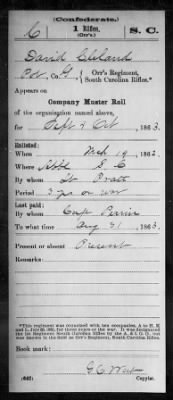 (Confederate.)
C 1 Rifles. S. C.
David Cleland
Pvt, Co. G, Orr's Regiment, South Carolina Rifles.*
Appears on
Company Muster Roll
of the organization named above,
for Sept & Oct, 1863.
Enlisted:
When Mch 19, 1862.
Where Abbe S C
By whom Lt Pratt
Period 3 yrs or war
Last paid:
By whom Capt Perrin
To what time Aug 31, 1863.
Present or absent Present
Remarks:
Book mark:
(642) Copyist.